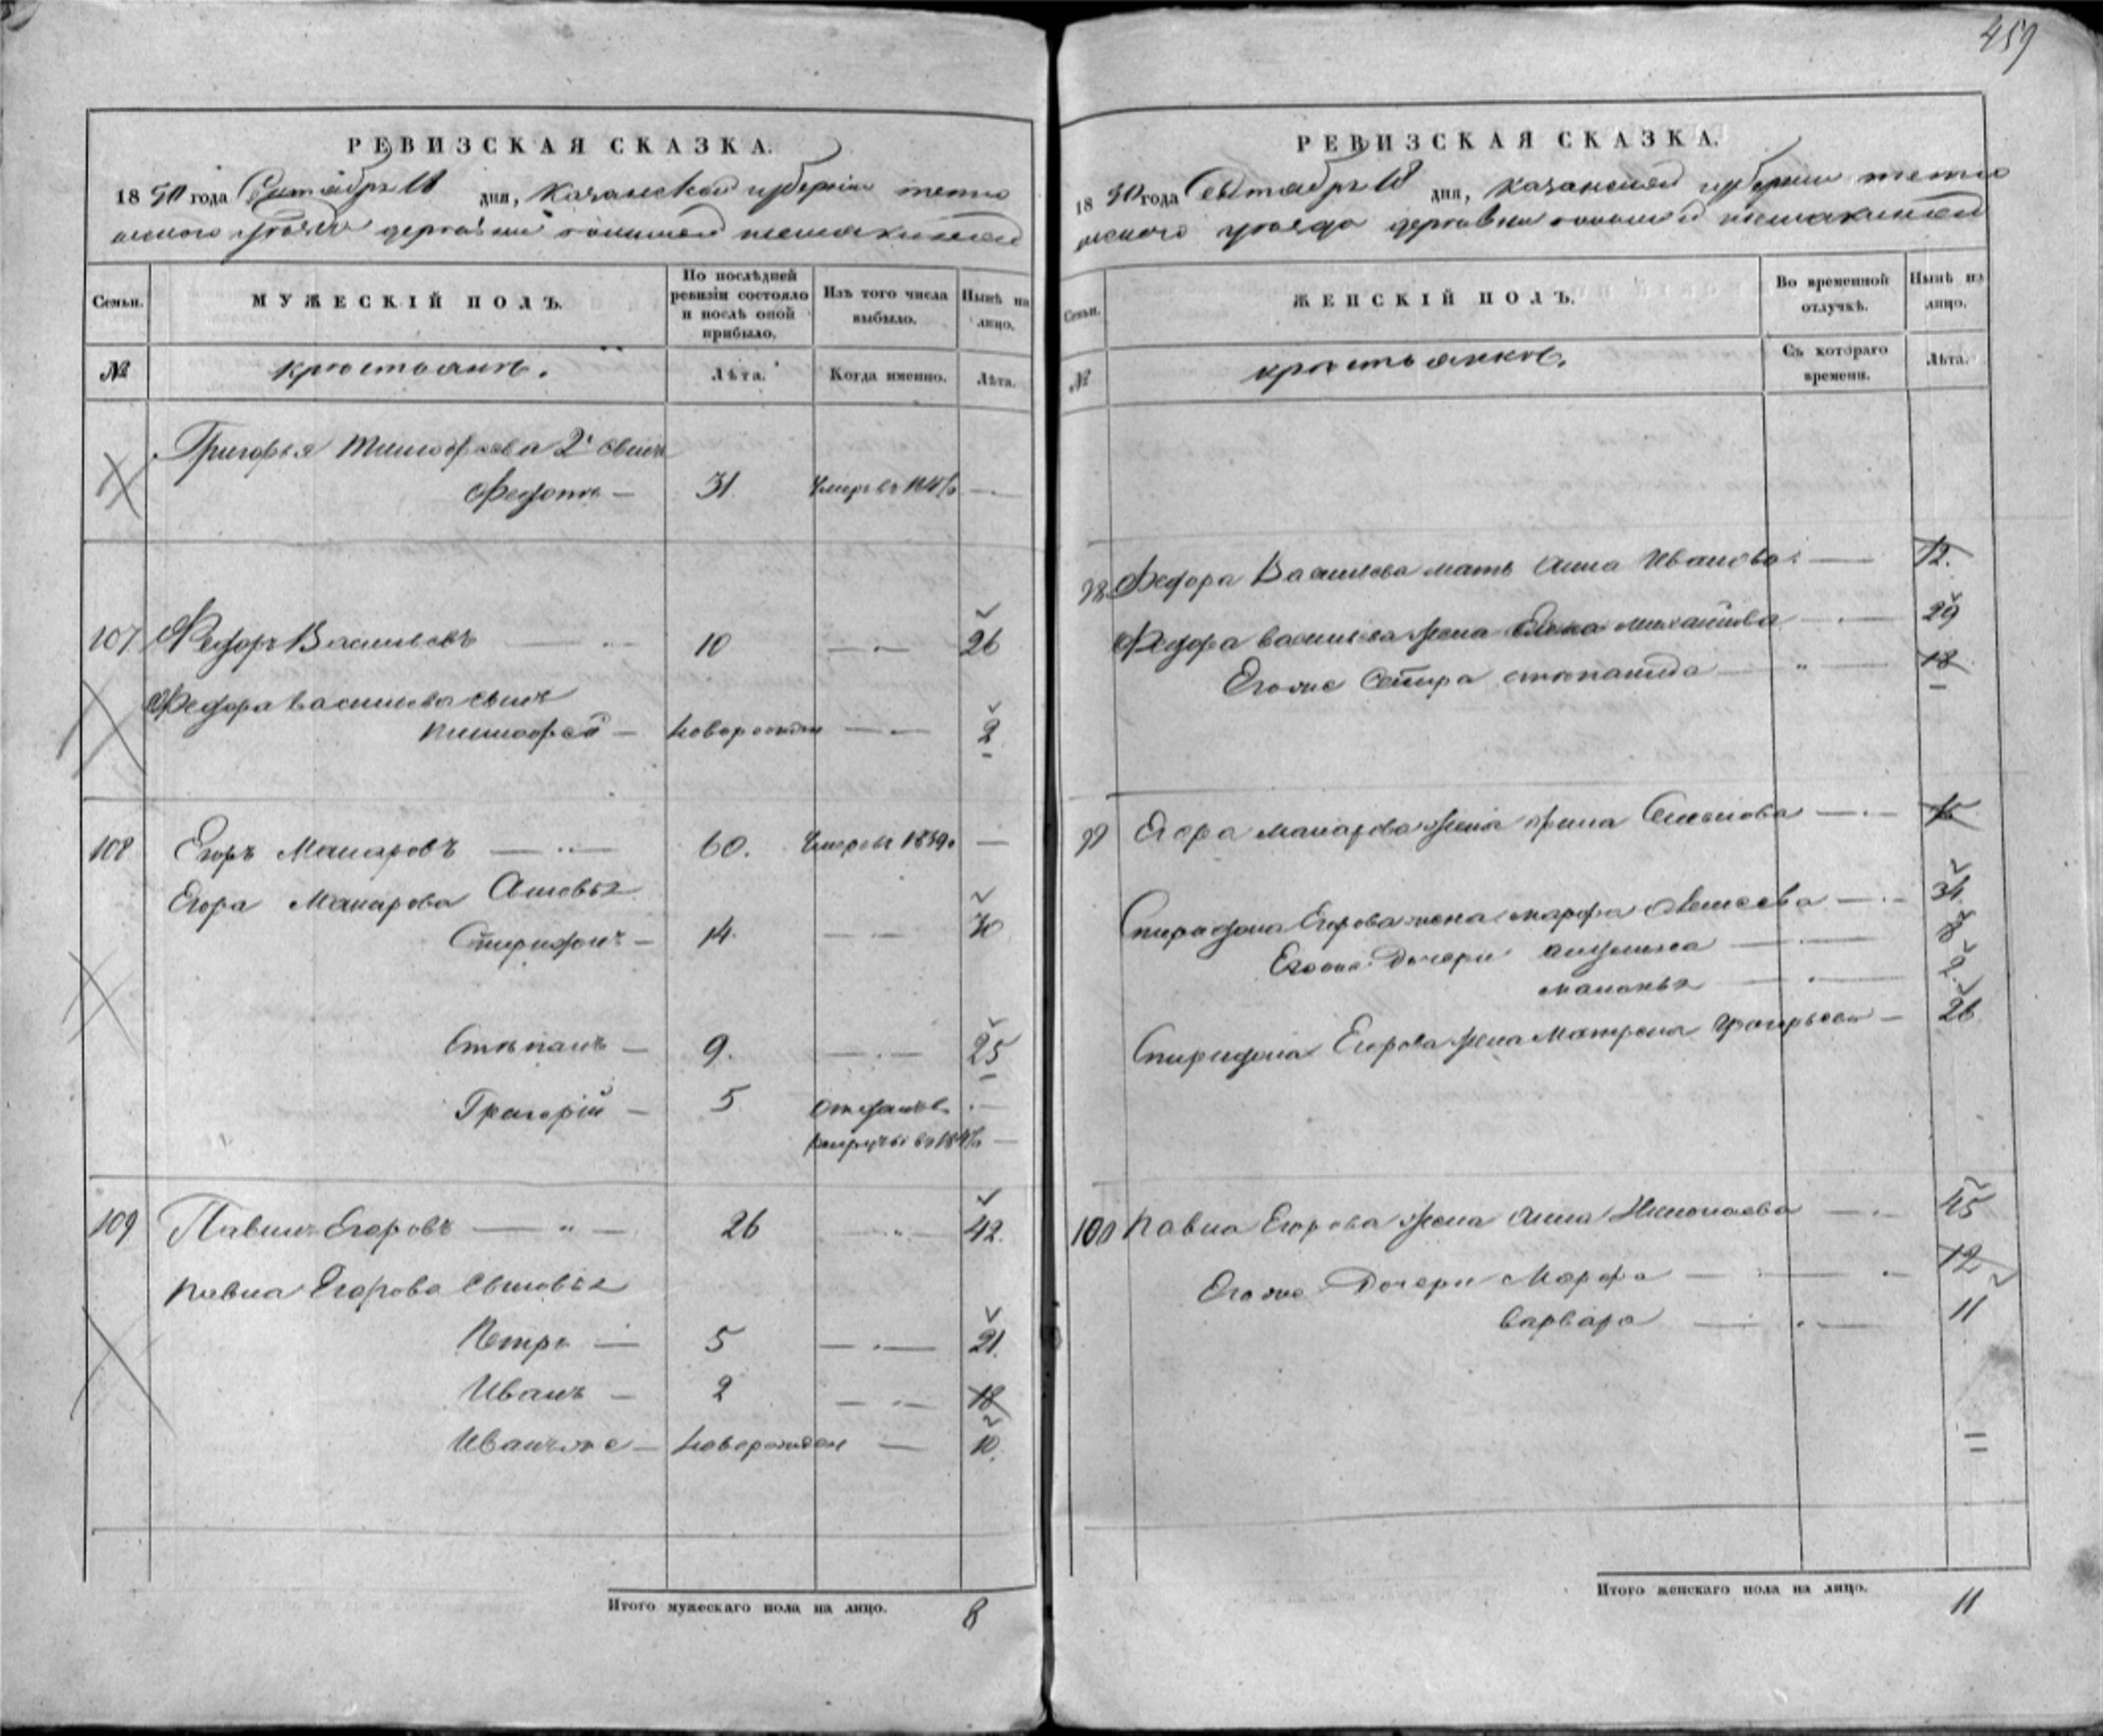 459
РЕВИЗСКАЯ СКАЗКА.
1850 года Сентября 18 дня, Казанской губерніи тетю
шскаго уѣзда деревни
Семьи. МУЖЕСКІЙ ПОЛЪ. По послѣдней ревизіи состояло и послѣ оной прибыло. Изъ того числа выбыло. Нынѣ на лицо.
№ крестьянъ. Лѣта. Когда именно. Лѣта.
Григорья Тимофеева 2й сынъ
Федотъ — 31. Умеръ въ —
107 Федоръ Васильевъ 10 — 26
Федора Васильева сынъ
Тимофей — новорожден — 2
108 Егоръ Макаровъ — 60. Умеръ въ 1839 —
Егора Макарова сыновья
Спиридонъ — 14. — 30
Степанъ — 9. — 25
Григорій — 5 Отданъ въ —
рекруты въ —
109 Павелъ Егоровъ — 26 — 42.
Павла Егорова сыновья
Петръ — 5 — 21.
Иванъ — 2 — 18
Иванъ же — новорожден — 10.
Итого мужескаго пола на лицо. 8
РЕВИЗСКАЯ СКАЗКА.
1850 года Сентября 18 дня, Казанской губерніи тетю
шскаго уѣзда деревни
Семьи. ЖЕНСКІЙ ПОЛЪ. Во временной отлучкѣ. Нынѣ на лицо.
№ крестьянокъ. Съ котораго времени. Лѣта.
98 Федора Васильева мать Анна Иванова — 72.
Федора Васильева жена Елена Михайлова — 29
Егоже сестра Степанида — 18
99 Егора Макарова жена Арина Семенова —
Спиридона Егорова жена Марфа — 34
Егоже дочери —
Маланья — 2
Егорова жена Матрена Григорьева — 26
100 Павла Егорова жена Анна Николаева — 45
Егоже дочери Марфа — 12
Варвара — 11
Итого женскаго пола на лицо. 11